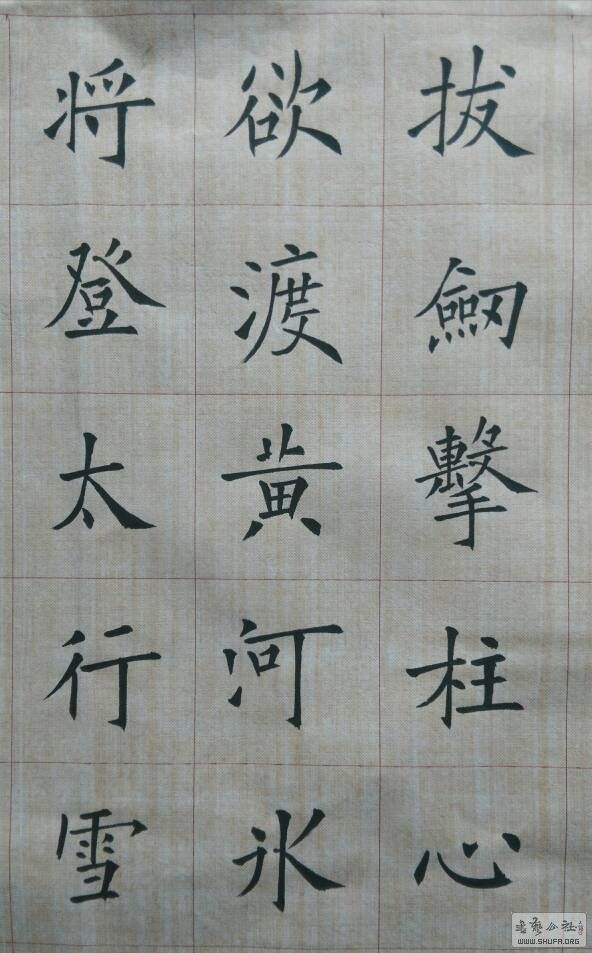 拔劔擊柱心
欲渡黄河氷
将登太行雪
書艺公社
WWW.SHUFA.ORG